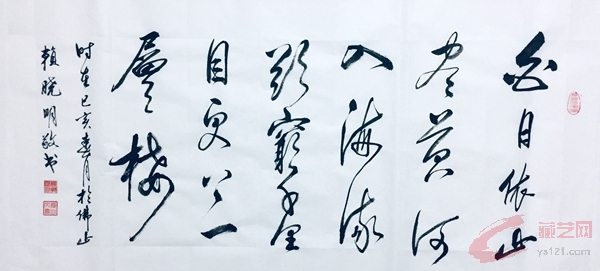 白日依山
尽黄河
入海流
欲窮千里
目更上一
層楼
时在己亥春月於佛山
賴晓明敬书
藏艺网
ys121.com